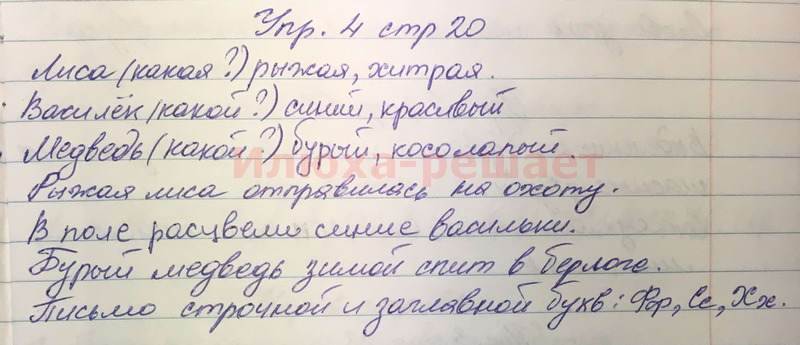 Упр. 4 стр 20
Лиса (какая?) рыжая, хитрая.
Василёк (какой?) синий, красивый
Медведь (какой?) бурый, косолапый.
Илюха-решает
Рыжая лиса отправилась на охоту.
В поле расцвели синие васильки.
Бурый медведь зимой спит в берлоге.
Письмо строчной и заглавной букв: Фф, Сс, Хх.